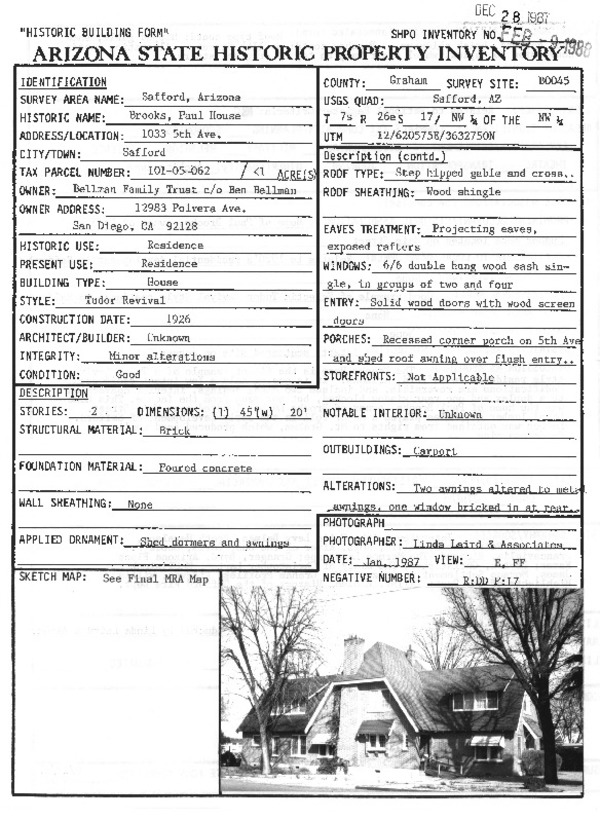 DEC 28 1987
"HISTORIC BUILDING FORM"
SHPO INVENTORY NO.
FEB -9 1988
ARIZONA STATE HISTORIC PROPERTY INVENTORY
IDENTIFICATION
SURVEY AREA NAME: Safford, Arizona
HISTORIC NAME: Brooks, Paul House
ADDRESS/LOCATION: 1033 5th Ave.
CITY/TOWN: Safford
TAX PARCEL NUMBER: 101-05-062 / <1 ACRE(S)
OWNER: Bellman Family Trust c/o Ben Bellman
OWNER ADDRESS: 12983 Polvera Ave.
San Diego, CA 92128
HISTORIC USE: Residence
PRESENT USE: Residence
BUILDING TYPE: House
STYLE: Tudor Revival
CONSTRUCTION DATE: 1926
ARCHITECT/BUILDER: Unknown
INTEGRITY: Minor alterations
CONDITION: Good
DESCRIPTION
STORIES: 2 DIMENSIONS: (l) 45'(w) 20'
STRUCTURAL MATERIAL: Brick
FOUNDATION MATERIAL: Poured concrete
WALL SHEATHING: None
APPLIED ORNAMENT: Shed dormers and awnings
COUNTY: Graham SURVEY SITE: B0045
USGS QUAD: Safford, AZ
T 7s R 26eS 17/ NW ¼ OF THE NW ¼
UTM 12/620575E/3632750N
Description (contd.)
ROOF TYPE: Step hipped gable and cross..
ROOF SHEATHING: Wood shingle
EAVES TREATMENT: Projecting eaves,
exposed rafters
WINDOWS: 6/6 double hung wood sash sin-
gle, in groups of two and four
ENTRY: Solid wood doors with wood screen
doors
PORCHES: Recessed corner porch on 5th Ave
and shed roof awning over flush entry..
STOREFRONTS: Not Applicable
NOTABLE INTERIOR: Unknown
OUTBUILDINGS: Carport
ALTERATIONS: Two awnings altered to metal
awnings, one window bricked in at rear
PHOTOGRAPH
PHOTOGRAPHER: Linda Laird & Associates
DATE: Jan. 1987 VIEW: E, FF
NEGATIVE NUMBER: R:DD F:17
SKETCH MAP: See Final MRA Map